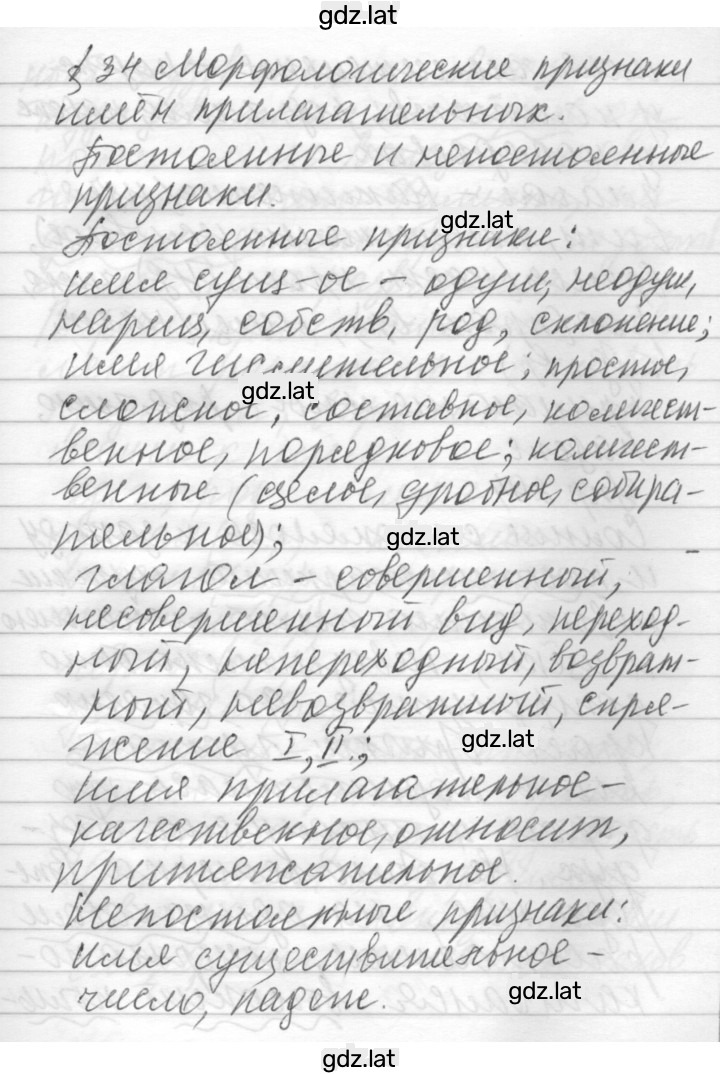 gdz.lat
§ 34 Морфологические признаки
имён прилагательных.
Постоянные и непостоянные
признаки.
gdz.lat
Постоянные признаки:
имя сущ-ое – одуш, неодуш,
нариц, собств, род, склонение;
имя числительное; простое,
gdz.lat
сложное, составное, количест-
венное, порядковое; количест-
венные (целое, дробное, собира-
тельное);
gdz.lat
глагол – совершенный,
несовершенный вид, переход-
ный, непереходный, возврат-
ный, невозвратный, спря-
жение I, II.;
gdz.lat
имя прилагательное –
качественное, относит,
притяжательное.
Непостоянные признаки:
имя существительное –
число, падеж.
gdz.lat
gdz.lat